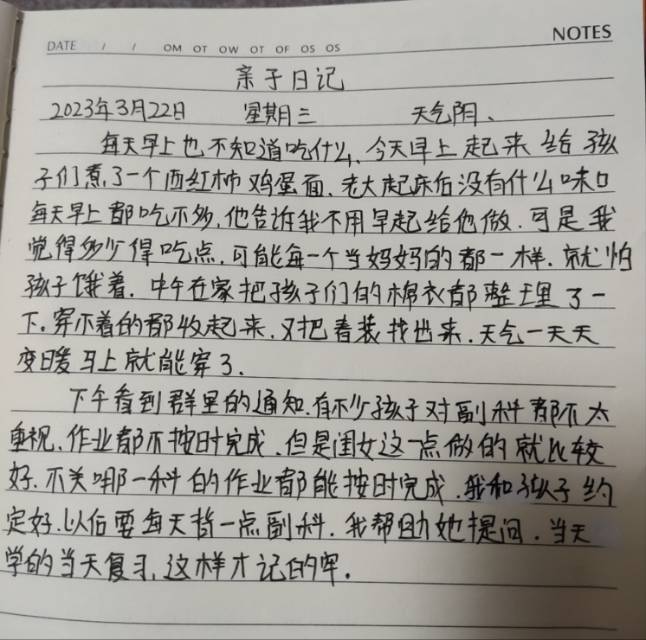 NOTES
DATE / / OM OT OW OT OF OS OS
亲子日记
2023年3月22日 星期三 天气阴、
每天早上也不知道吃什么、今天早上起来给孩
子们煮了一个西红柿鸡蛋面、老大起床后没有什么味口
每天早上都吃不多,他告诉我不用早起给他做.可是我
觉得多少得吃点,可能每一个当妈妈的都一样.就怕
孩子饿着.中午在家把孩子们的棉衣都整理了一
下.穿不着的都收起来,又把春装找出来.天气一天天
变暖马上就能穿了.
下午看到群里的通知.有不少孩子对副科都不太
重视.作业都不按时完成.但是闺女这一点做的就比较
好.不关哪一科的作业都能按时完成.我和孩子约
定好.以后要每天背一点副科.我帮助她提问.当天
学的当天复习,这样才记的牢.